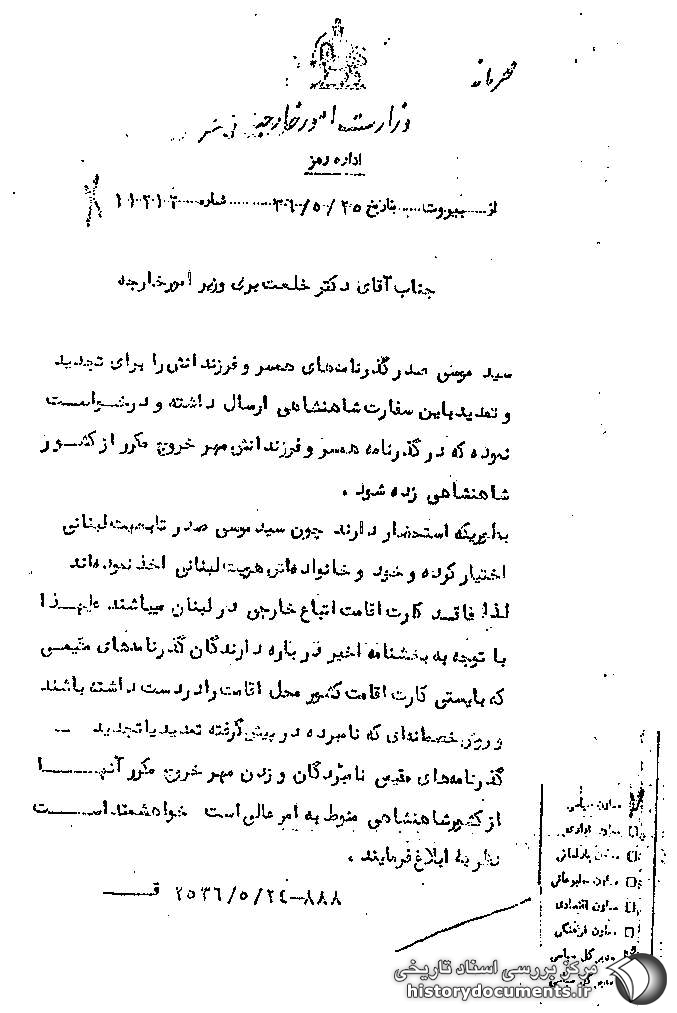 محرمانه
وزارت امور خارجه
اداره رمز
از بیروت بتاریخ ۳۶/۵/۲۵ شماره ۱۱۲۱۲
جناب آقای دکتر خلعت بری وزیر امور خارجه
سید موسی صدر گذرنامه‌های همسر و فرزندانش را برای تجدید
و تمدید باین سفارت شاهنشاهی ارسال داشته و درخواست
نموده که در گذرنامه همسر و فرزندانش مهر خروج مکرر از کشور
شاهنشاهی زده شود .
بطوریکه استحضار دارند چون سید موسی صدر تابعیت لبنانی
اختیار کرده و خود و خانواده‌اش هویت لبنانی اخذ نموده‌اند
لذا فاقد کارت اقامت اتباع خارجی در لبنان میباشند علیهذا
با توجه به بخشنامه اخیر در باره دارندگان گذرنامه‌های مقیمی
که بایستی کارت اقامت کشور محل اقامت را در دست داشته باشند
و رویه خصمانه‌ای که نامبرده در پیش گرفته تمدید یا تجدید
گذرنامه‌های مقیمی نامبردگان و زدن مهر خروج مکرر آنها
از کشور شاهنشاهی منوط به امر عالی است خواهشمند است
نظریه ابلاغ فرمایند .
۸۸۸-۲۵۳۶/۵/۲۴ ق
معاون سیاسی
معاون اداری
معاون پارلمانی
معاون اقتصادی
معاون فرهنگی
مدیر کل سیاسی
مدیر کل
مرکز بررسی اسناد تاریخی
historydocuments.ir